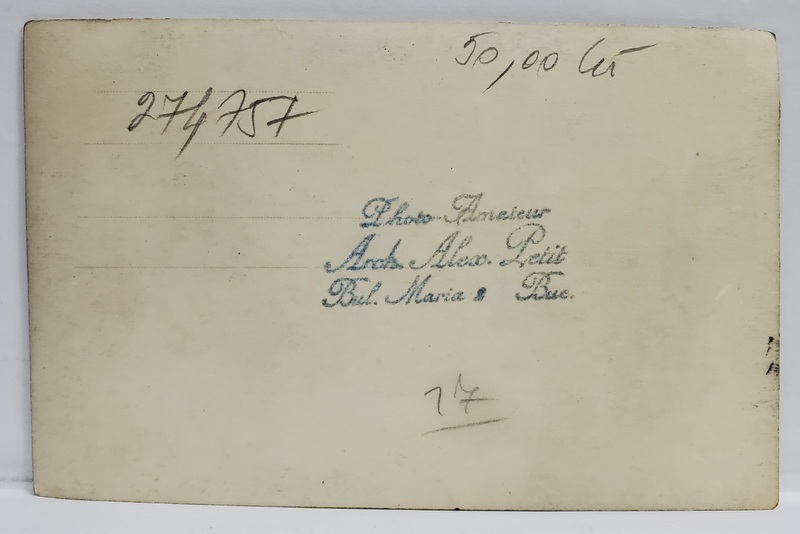 50,00 lei
274757
Photo-Amateur
Arch. Alex. Petit
Bul. Maria 8 Buc.
17